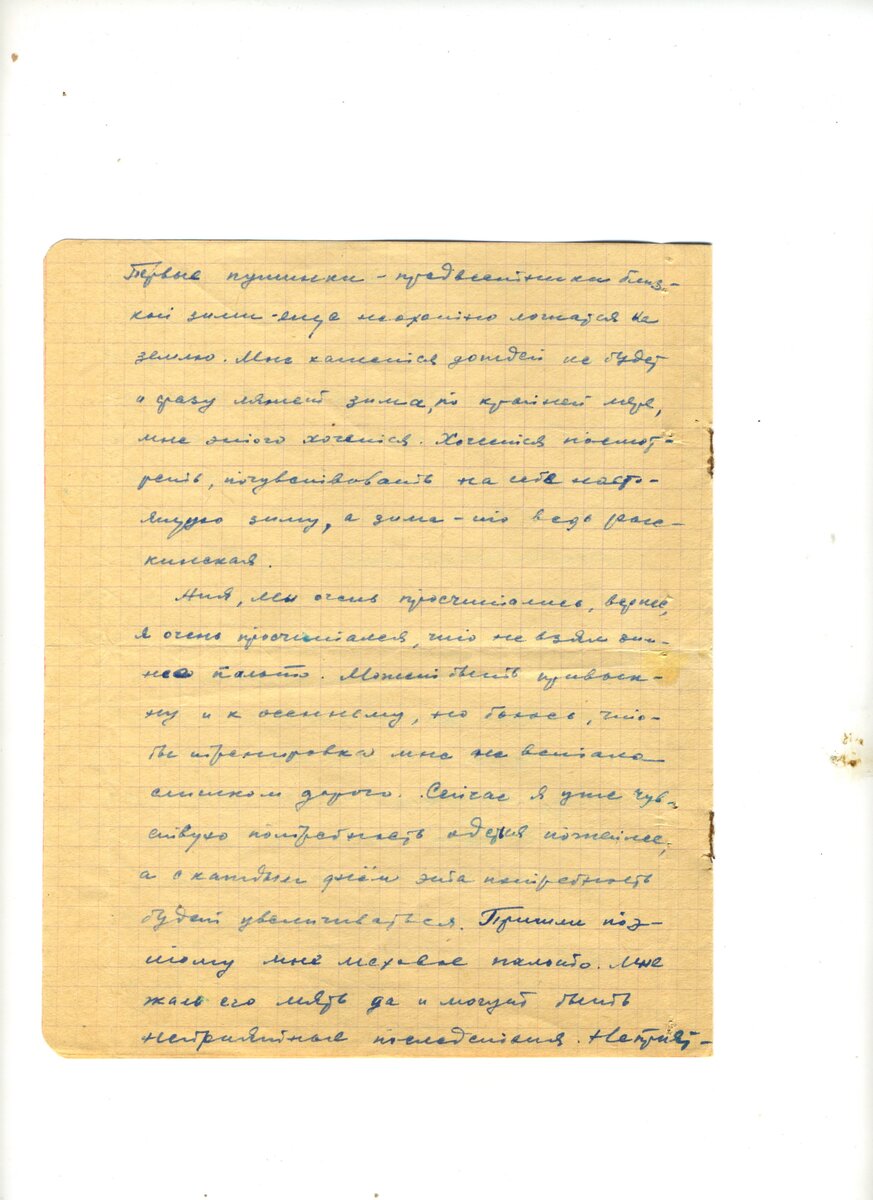 Первые пушинки - предвестники близ-
кой зимы - еще неохотно ложатся на
землю. Мне кажется дождей не будет
и сразу ляжет зима, по крайней мере,
мне этого хочется. Хочется посмот-
реть, почувствовать на себе насто-
ящую зиму, а зима-то ведь
кинская.
Аня, мы очень просчитались, вернее,
я очень просчитался, что не взял зим-
нее пальто. Может быть привык-
ну и к осеннему, но боюсь, что-
бы тренировка мне не встала
слишком дорого. Сейчас я уже чув-
ствую потребность одеться поплотнее,
а с каждым днём эта потребность
будет увеличиваться. Пришли поэ-
тому мне меховое пальто. Мне
жаль его мять да и могут быть
неприятные последствия. Неприят-